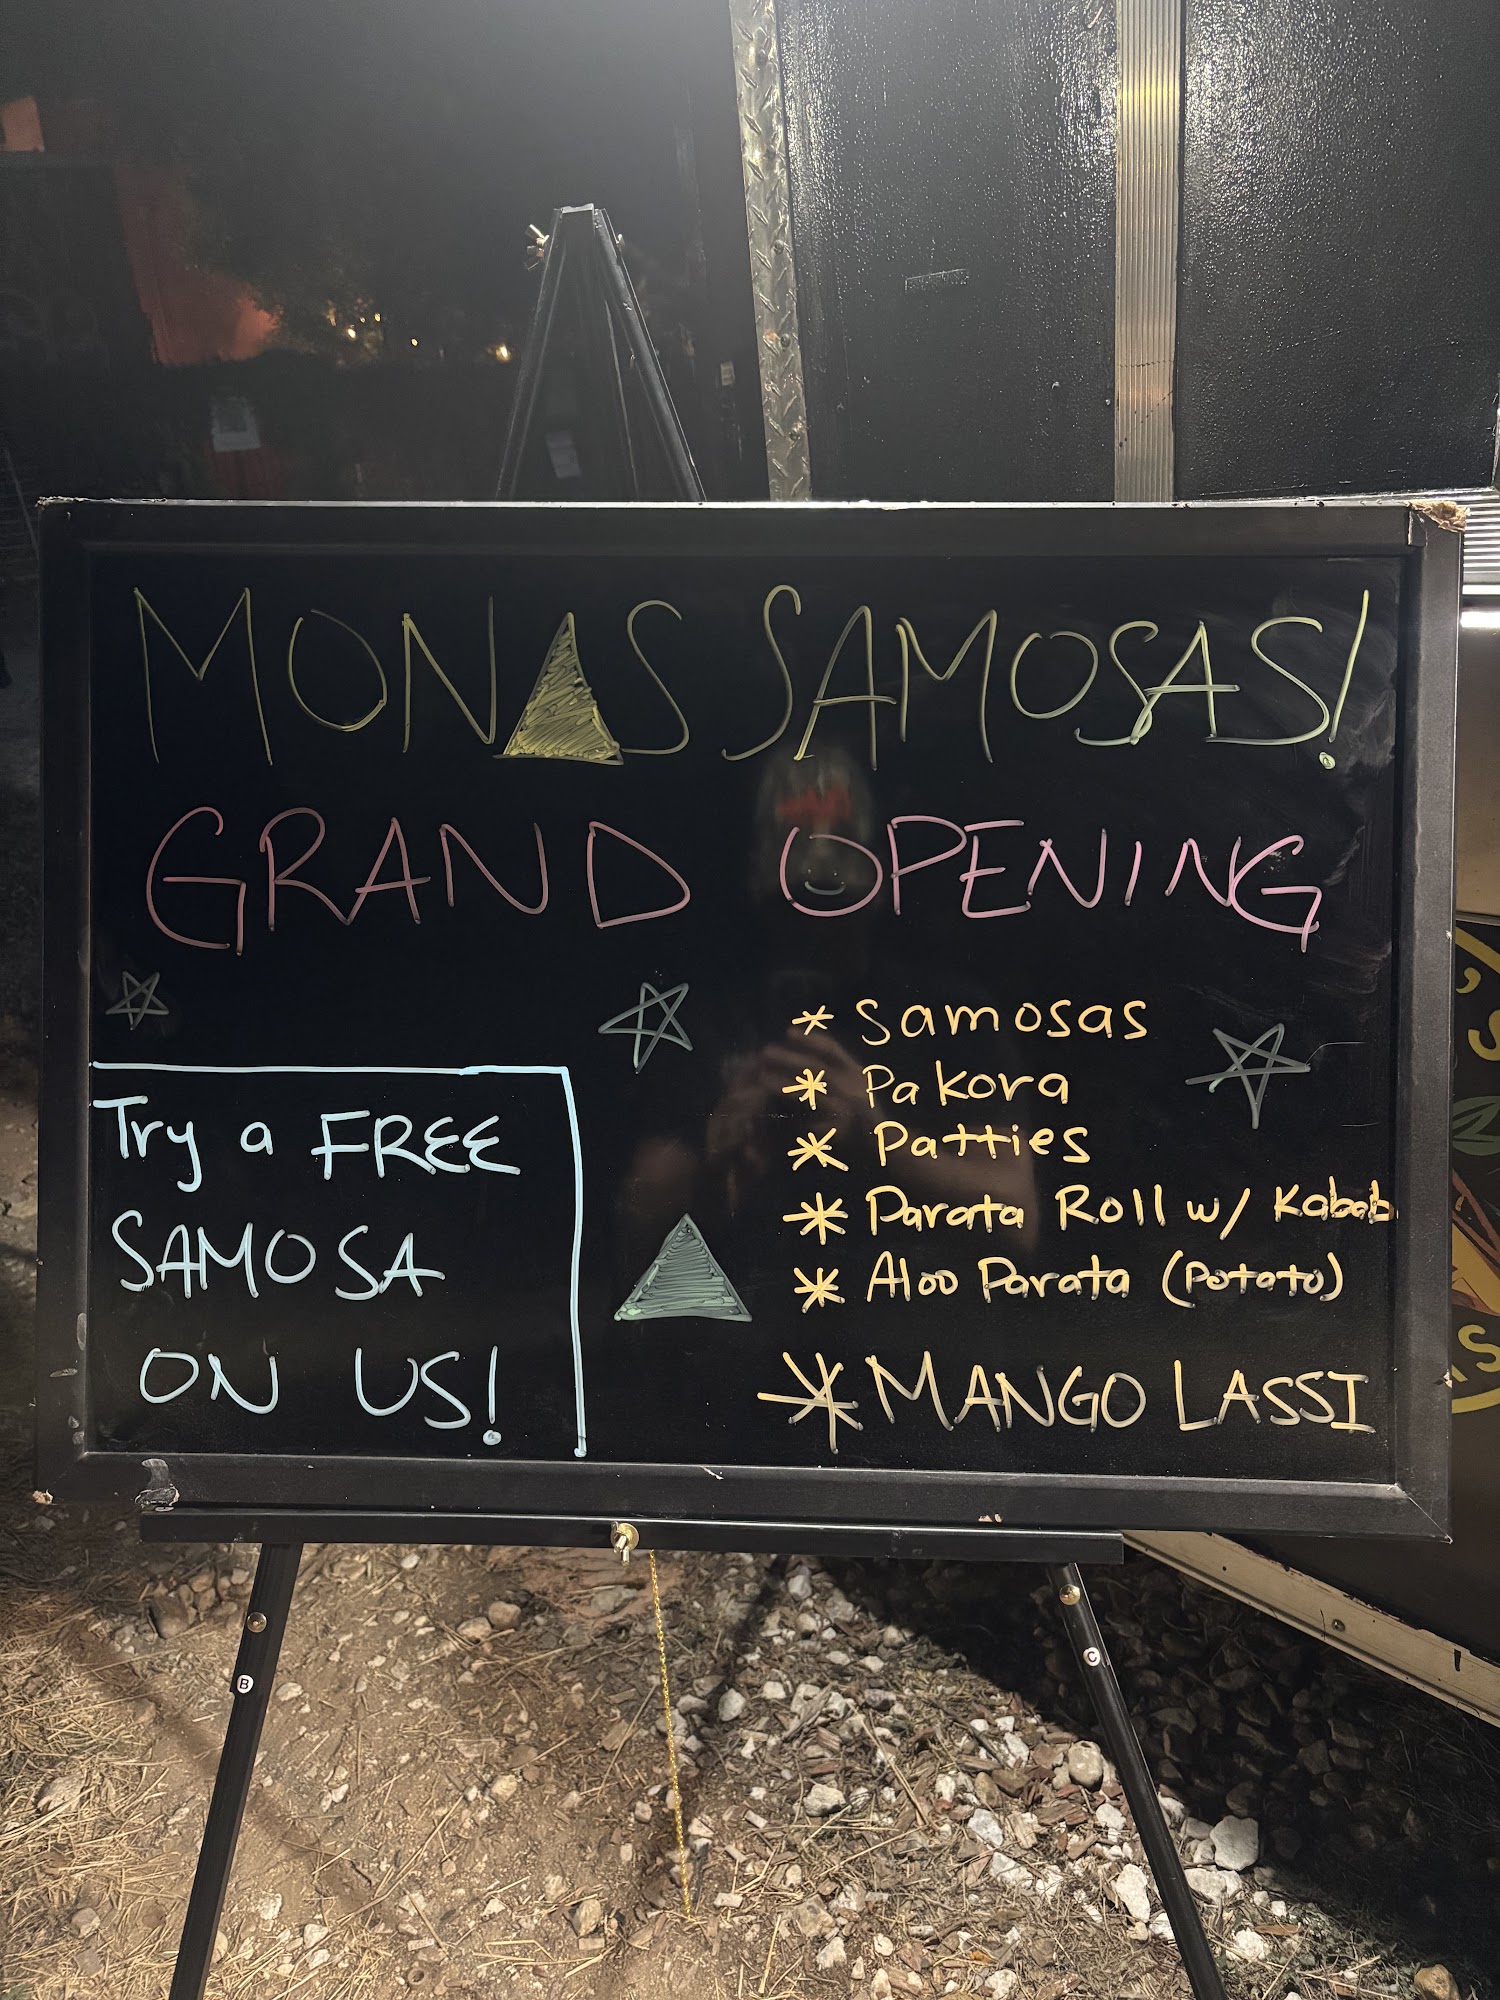 MONAS SAMOSAS!
GRAND OPENING
Try a FREE
SAMOSA
ON US!
* Samosas
* Pakora
* Patties
* Parata Roll w/ Kabab
* Aloo Parata (Potato)
* MANGO LASSI
B
C